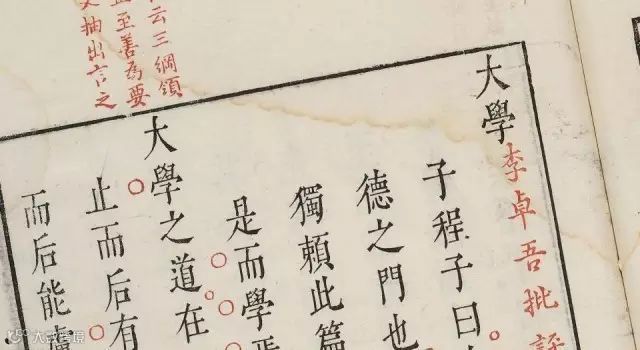 大學
李卓吾批評
子程子曰
德之門也
獨賴此篇
是而學焉
大學之道在
止而后有
而后能慮
云三綱領
至善為要
抽出言之
大武夷境